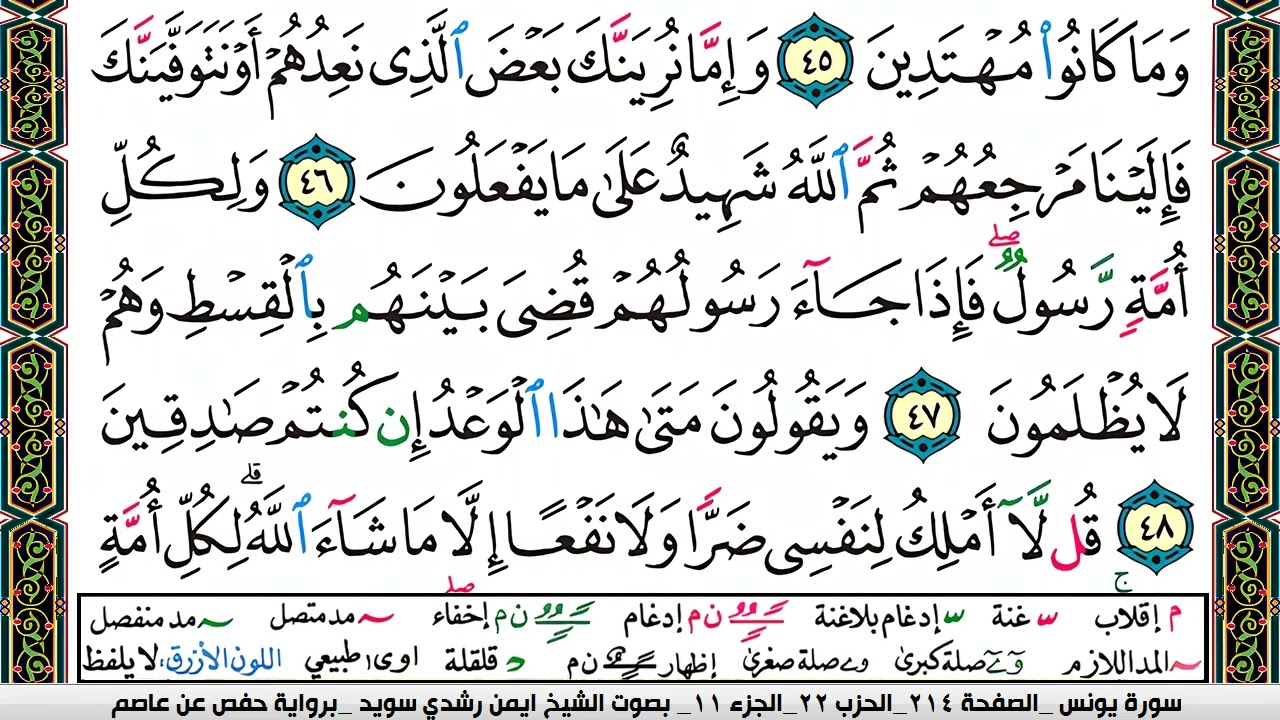 وَمَا كَانُوا۟ مُهْتَدِينَ ٤٥ وَإِمَّا نُرِيَنَّكَ بَعْضَ ٱلَّذِى نَعِدُهُمْ أَوْ نَتَوَفَّيَنَّكَ
فَإِلَيْنَا مَرْجِعُهُمْ ثُمَّ ٱللَّهُ شَهِيدٌ عَلَىٰ مَا يَفْعَلُونَ ٤٦ وَلِكُلِّ
أُمَّةٍ رَّسُولٌ ۖ فَإِذَا جَآءَ رَسُولُهُمْ قُضِىَ بَيْنَهُم بِٱلْقِسْطِ وَهُمْ
لَا يُظْلَمُونَ ٤٧ وَيَقُولُونَ مَتَىٰ هَـٰذَا ٱلْوَعْدُ إِن كُنتُمْ صَـٰدِقِينَ
٤٨ قُل لَّآ أَمْلِكُ لِنَفْسِى ضَرًّا وَلَا نَفْعًا إِلَّا مَا شَآءَ ٱللَّهُ ۗ لِكُلِّ أُمَّةٍ
م إقلاب س غنة س إدغام بلاغنة ن م إدغام ن م إخفاء ~ مد متصل ~ مد منفصل
~ المد اللازم و ے صلة كبرى و ے صلة صغرى إظهار ن م د قلقلة اوى طبيعي اللون الأزرق، لا يلفظ
سورة يونس _الصفحة ٢١٤_الحزب ٢٢_الجزء ١١_ بصوت الشيخ ايمن رشدي سويد _برواية حفص عن عاصم